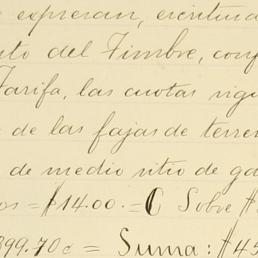 e expresan, escritura
nto del Timbre, conf
Tarifa, las cuotas vigu
de las fajas de terren
de medio sitio de ga
os = $14.00. = C Sobre $
399.70c = Suma: $45